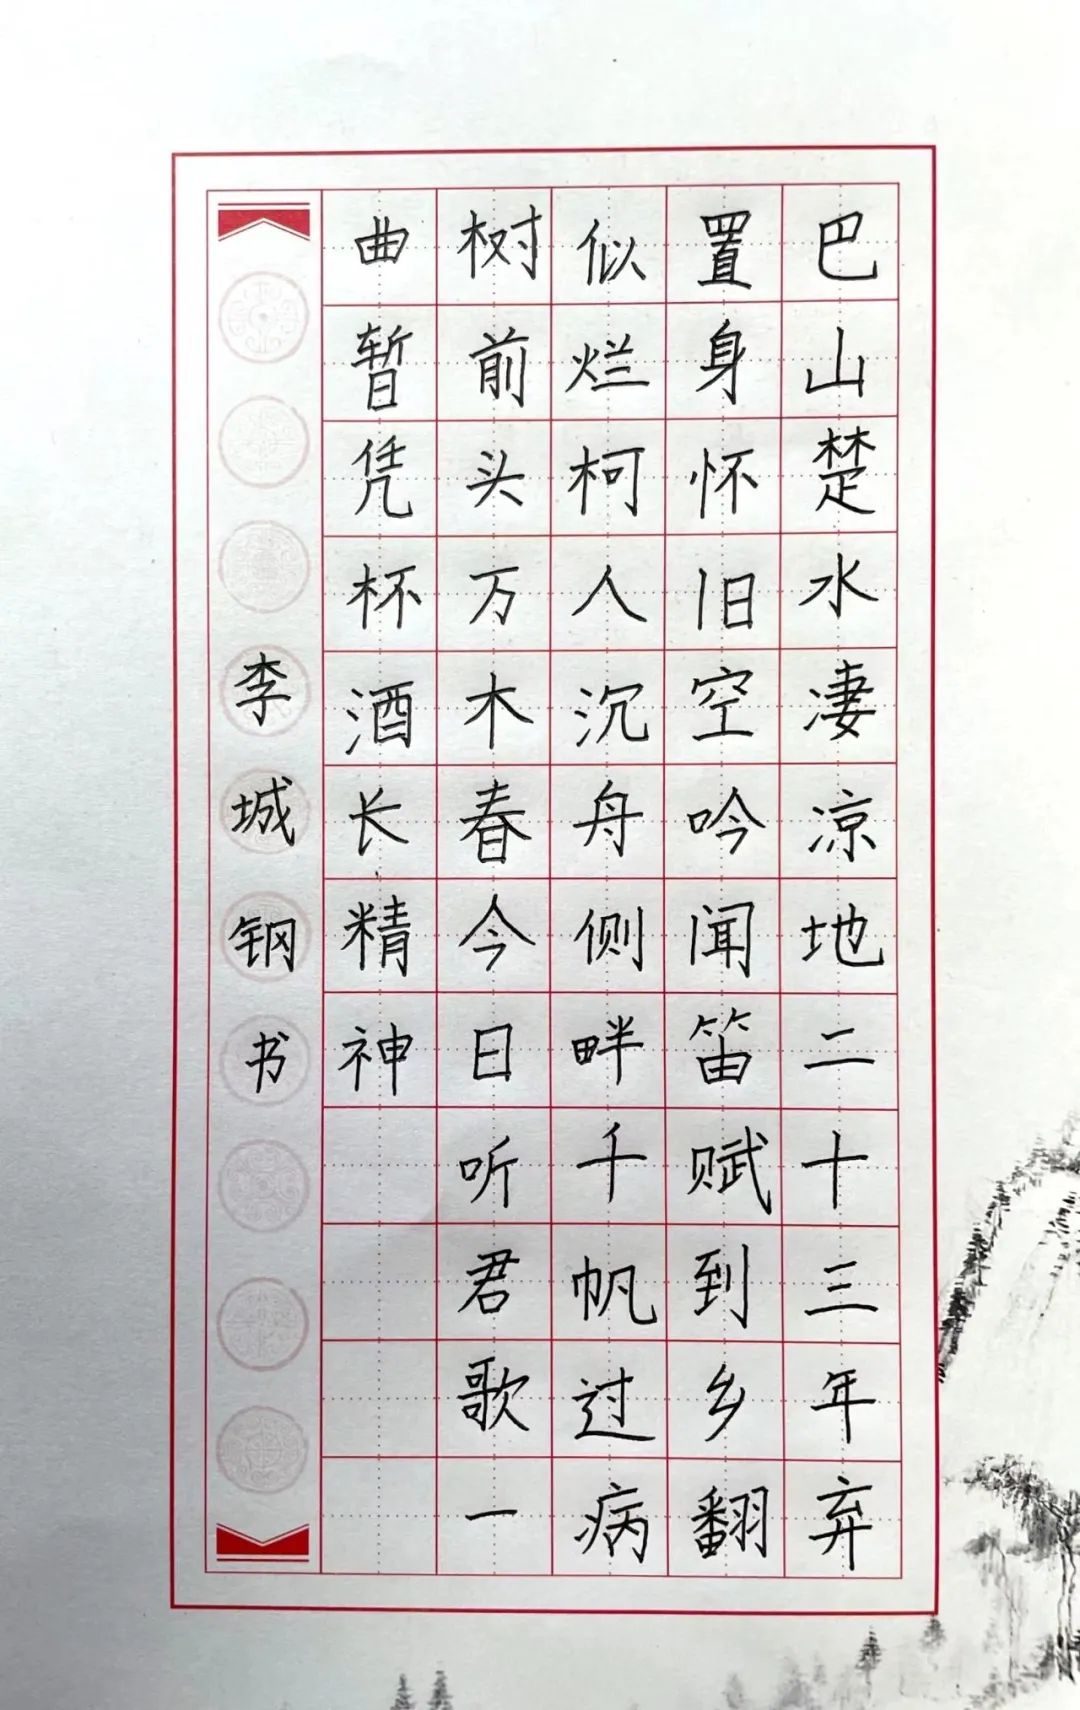 巴山楚水凄凉地二十三年弃
置身怀旧空吟闻笛赋到乡翻
似烂柯人沉舟侧畔千帆过病
树前头万木春今日听君歌一
曲暂凭杯酒长精神
李城钢书